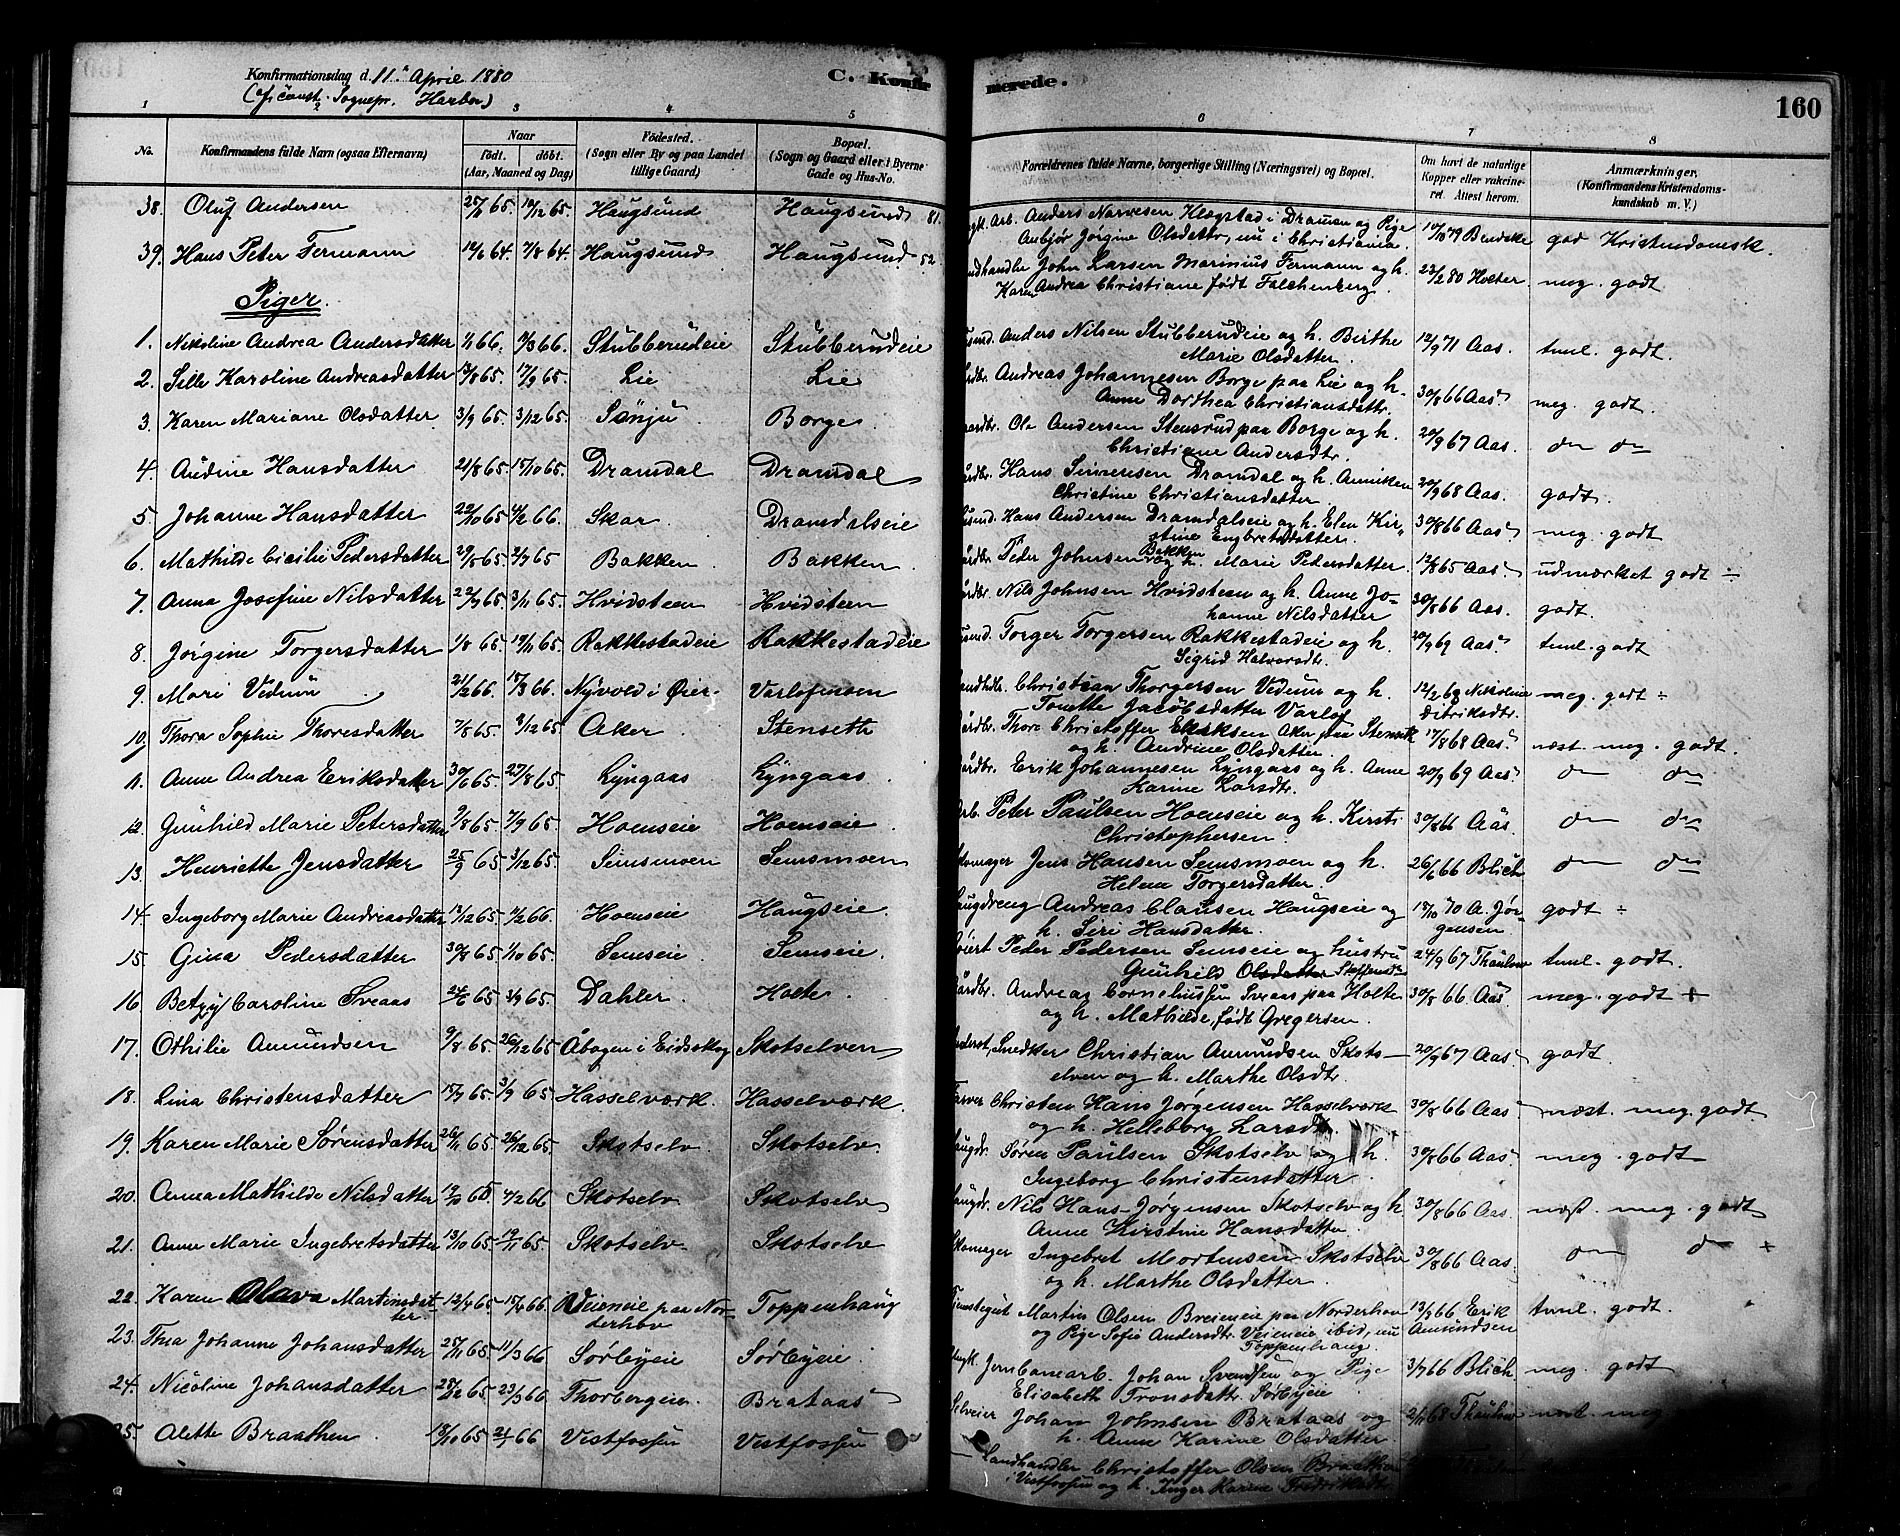 Konfirmationsdag d. 11. April 1880 C. Konfir merede. 160
(af const. Sognepr. Harboe)
1 3 4 5 6 7 8
No. Konfirmandens fulde Navn (ogsaa Efternavn) Naar födt. döbt. (Aar, Maaned og Dag) Födested. (Sogn eller By og paa Landet tillige Gaard) Bopæl. (Sogn og Gaard eller i Byerne Gade og Hus-No. Forældrenes fulde Navne, borgerlige Stilling (Næringsvei) og Bopæl. Om havt de naturlige Kopper eller vakcineret. Attest herom. Anmærkninger. (Konfirmandens Kristendomskundskab m. V.)
38. Oluf Andersen 65. 65. Haugsund Haugsund 81. Arb. Anders Narvesen Klegstad i Drammen og Pige
Anbjør Jørgine Olsdatter, nu i Christiania. 79 Bendeke god Kristendomsk.
39. Hans Peter Fermann 12/6 64. 7/8 64. Haugsund Haugsund. 52. Landhandler John Larsen Marinius Fermann og h.
Karen Andrea Christiane født Falchenberg. 23/2 80 Holter meg. godt
Piger.
1. Nikoline Andrea Andersdatter 1/1 66. 66. Stubberudeie Stubberudeie Anders Nilsen Stubberudeie og h. Birthe
Marie Olsdatter. 12/9 71 Aas. tml. godt.
2. Sille Karoline Andreasdatter 65. 17/9 65. Lie Lie Andreas Johannesen Borge paa Lie og h.
Anne Dorthea Christiansdatter. 30/8 66 Aas meg. godt.
3. Karen Mariane Olsdatter 3/9 65. 3/12 65. Sønju Borge. Ole Andersen Stensrud paa Borge og h.
Christiane Andersdtr. 20/9 67 Aas do do
4. Audine Hansdatter 21/8 65. 15/10 65. Dramdal Dramdal Hans Simensen Dramdal og h. Anniken
Christine Christiansdatter. 20/9 68 Aas. godt.
5. Johanne Hansdatter 22/10 65 4/2 66. Skar. Dramdalseie Hans Andersen Dramdalseie og h. Elen Kir-
stine Engbretsdatter. 30/8 66 Aas meg. godt
6. Mathilde Cicilie Pedersdatter 29/5 65 2/7 65 Bakken Bakken. Peder Johnsen Bakken og h. Marie Pedersdatter. 65 Aas. udmærket godt ÷
7. Anna Josefine Nilsdatter 22/9 65. 3/11 65. Hvidsteen Hvidsteen Nils Johnsen Hvidsteen og h. Anne Jo-
hanne Nilsdatter 30/8 66 Aas. godt.
8. Jørgine Torgersdatter 1/8 65. 19/11 65. Rakkestadeie Rakkestadeie Torger Torgersen Rakkestadeie og h.
Sigrid Halvorsdtr. 20/9 69 Aas. tml. godt
9. Mari Vedum 21/2 66. 66. Nyvold i Øier Varlofmoen Christian Thorgersen Vedum og h.
Tonette Jacobsdatter Varlof 12/2 68 Nikoline Didriksdtr. meg. godt ÷
10. Thora Sophie Thoresdatter 7/8 65. 3/12 65 Aker Stenseth Thore Christoffer Aker paa
og h. Andrine Olsdatter. 17/8 68 Aas næst. meg. godt.
11. Anne Andrea Eriksdatter 65. 27/8 65 Lyngaas Lyngaas Erik Johannesen Lyngaas og h. Anne
Karine Larsdtr. 20/9 69 Aas do do
12. Gunhild Marie Petersdatter 9/8 65. 7/9 65. Hoenseie Hoenseie. Arb. Peter Paulsen Hoenseie og h. Kirsti
Christophersen. 30/8 66 Aas. do do
13. Henriette Jensdatter 25/9 65 3/12 65. Semsmoen Semsmoen Skomager Jens Hansen Semsmoen og h.
Helene Torgersdatter. 26/6 66 Blich do do
14. Ingeborg Marie Andreasdatter 65. 66. Hoenseie Haugseie. Andreas Clausen Haugseie og
h. Siri Hansdatter. 70 A. Jørgensen godt ÷
15. Gina Pedersdatter 30/8 65. 1/10 65. Semseie Semseie Peder Pedersen Semseie og hustru
Gunhild Olsdatter 24/9 67 Thaulow tml. godt.
16 Betzy Caroline Sveaas 65 3/9 65. Dahler. Holte. Andreas Corneliussen Sveaas paa Holte
og h. Mathilde, født Gregersen. 30/8 66 Aas meg. godt +
17. Othilie Amundsen 9/8 65. 26/12 65 Åbogen i Eidskog Skotselven Snedker Christian Amundsen Skots-
elven og h. Marthe Olsdtr. 20/9 67 Aas godt
18. Lina Christensdatter 65. 65. Hasselværk. Hasselværk. Farver Christen Hans Jørgensen Hasselværk
og h. Helleborg Larsdtr 30/8 66 Aas. næst. meg. godt
19. Karen Marie Sørensdatter 26/11 65. 26/12 65. Skotselv. Skotselv. Søren Paulsen Skotselv og h.
Ingeborg Christensdatter. 30/8 66 Aas. meg. godt
20. Anna Mathilde Nilsdatter 65 4/2 66 Skotselv Skotselv Nils Hans-Jørgensen Skotselv og h
Anne Kirstine Hansdatter 30/8 66 Aas. næst. meg. godt
21. Anne Marie Ingebretsdatter 13/10 65. 65. Skotselv. Skotselv Skomager Ingebret Mortensen Skotselv
og h. Marthe Olsdatter. 30/8 66 Aas. do do +
22. Karen Olava Martinsdat-
ter. 12/4 65 66. Veieneie paa Nor-
derhov Toppenhaug Tjenestegut Martin Olsen Breieneie paa Norderhov
og Pige Sofie Andersdtr. Veieneie ibid, nu
Toppenhaug. 13/9 66 Erik Amundsen tml. godt.
23. Thea Johanne Johansdatter 25/11 65. 11/3 66 Sørbyeie Sørbyeie. Jernbanearb. Johan Svendsen og Pige
Elisabeth Tronsdatter Sørbyeie 3/7 66 Blich. meg. godt
24. Nicoline Johansdatter 65. 23/3 66 Thorbergeie. Brataas Selveier Johan Johnsen Brataas og
h. Anne Karine Olsdatter 68 Thaulow næst. meg
25. Alette Braathen 18/10 65 66 Vestfossen Vestfossen Landhandler Christoffer Olsen Braathen
i Vestfossen og h. Inger Karine